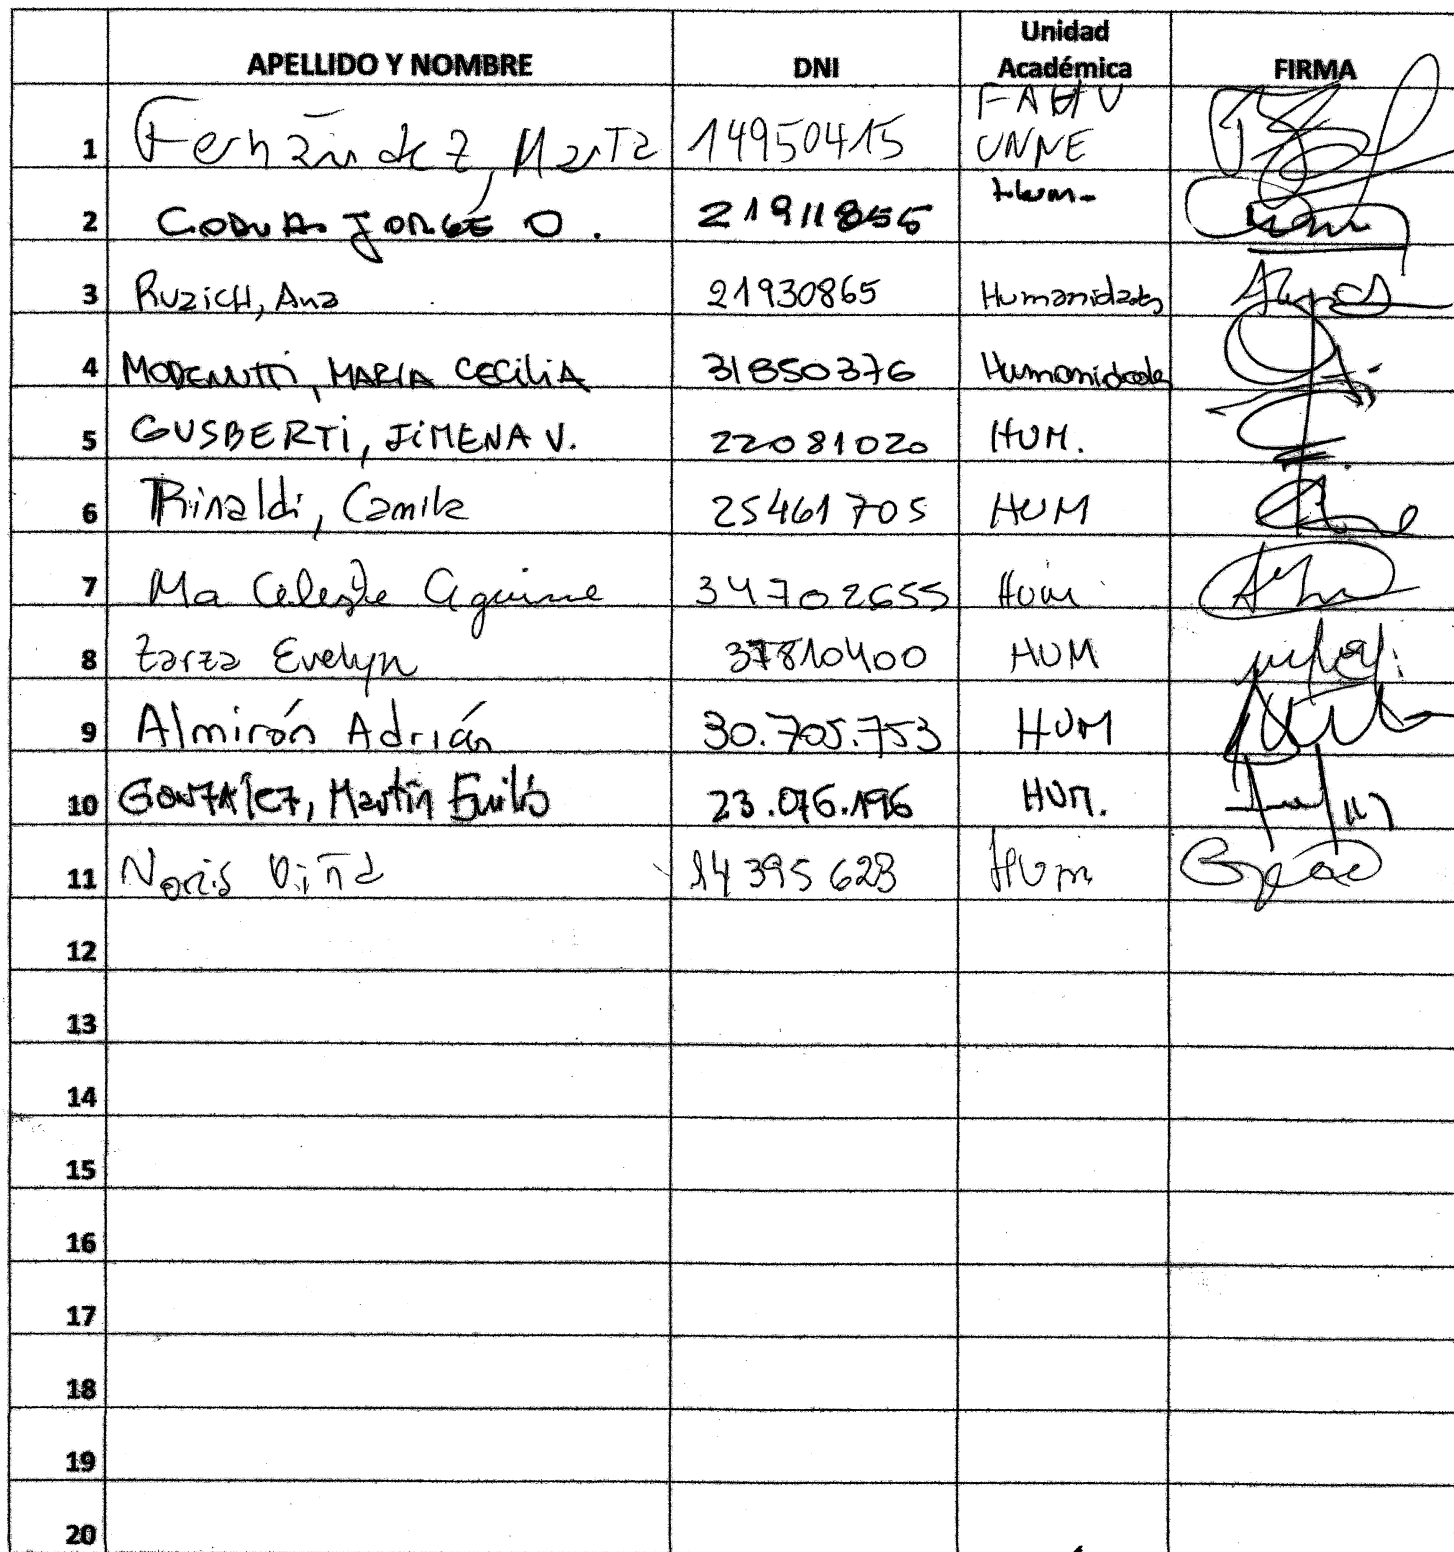 APELLIDO Y NOMBRE DNI Unidad Académica FIRMA
1 Fernández, Marta 14950415 FAHU UNNE
2 JORGE O. 21911855 Hum-
3 RuzicH, Ana 21930865 Humanidades
4 MODENUTTi, MARIA CECiliA 31850376 Humanidades
5 GUSBERTi, JiMENA V. 22081020 HUM.
6 Rinaldi, Camila 25461705 HUM
7 Ma Celeste Aguirre 34702655 Hum
8 Zarza Evelyn 37810400 HUM
9 Almirón Adrián 30.705.753 HUM
10 GONZAlez, Martín Emilio 23.076.196 HUM.
11 Noris Viña 14395628 HUm
12
13
14
15
16
17
18
19
20